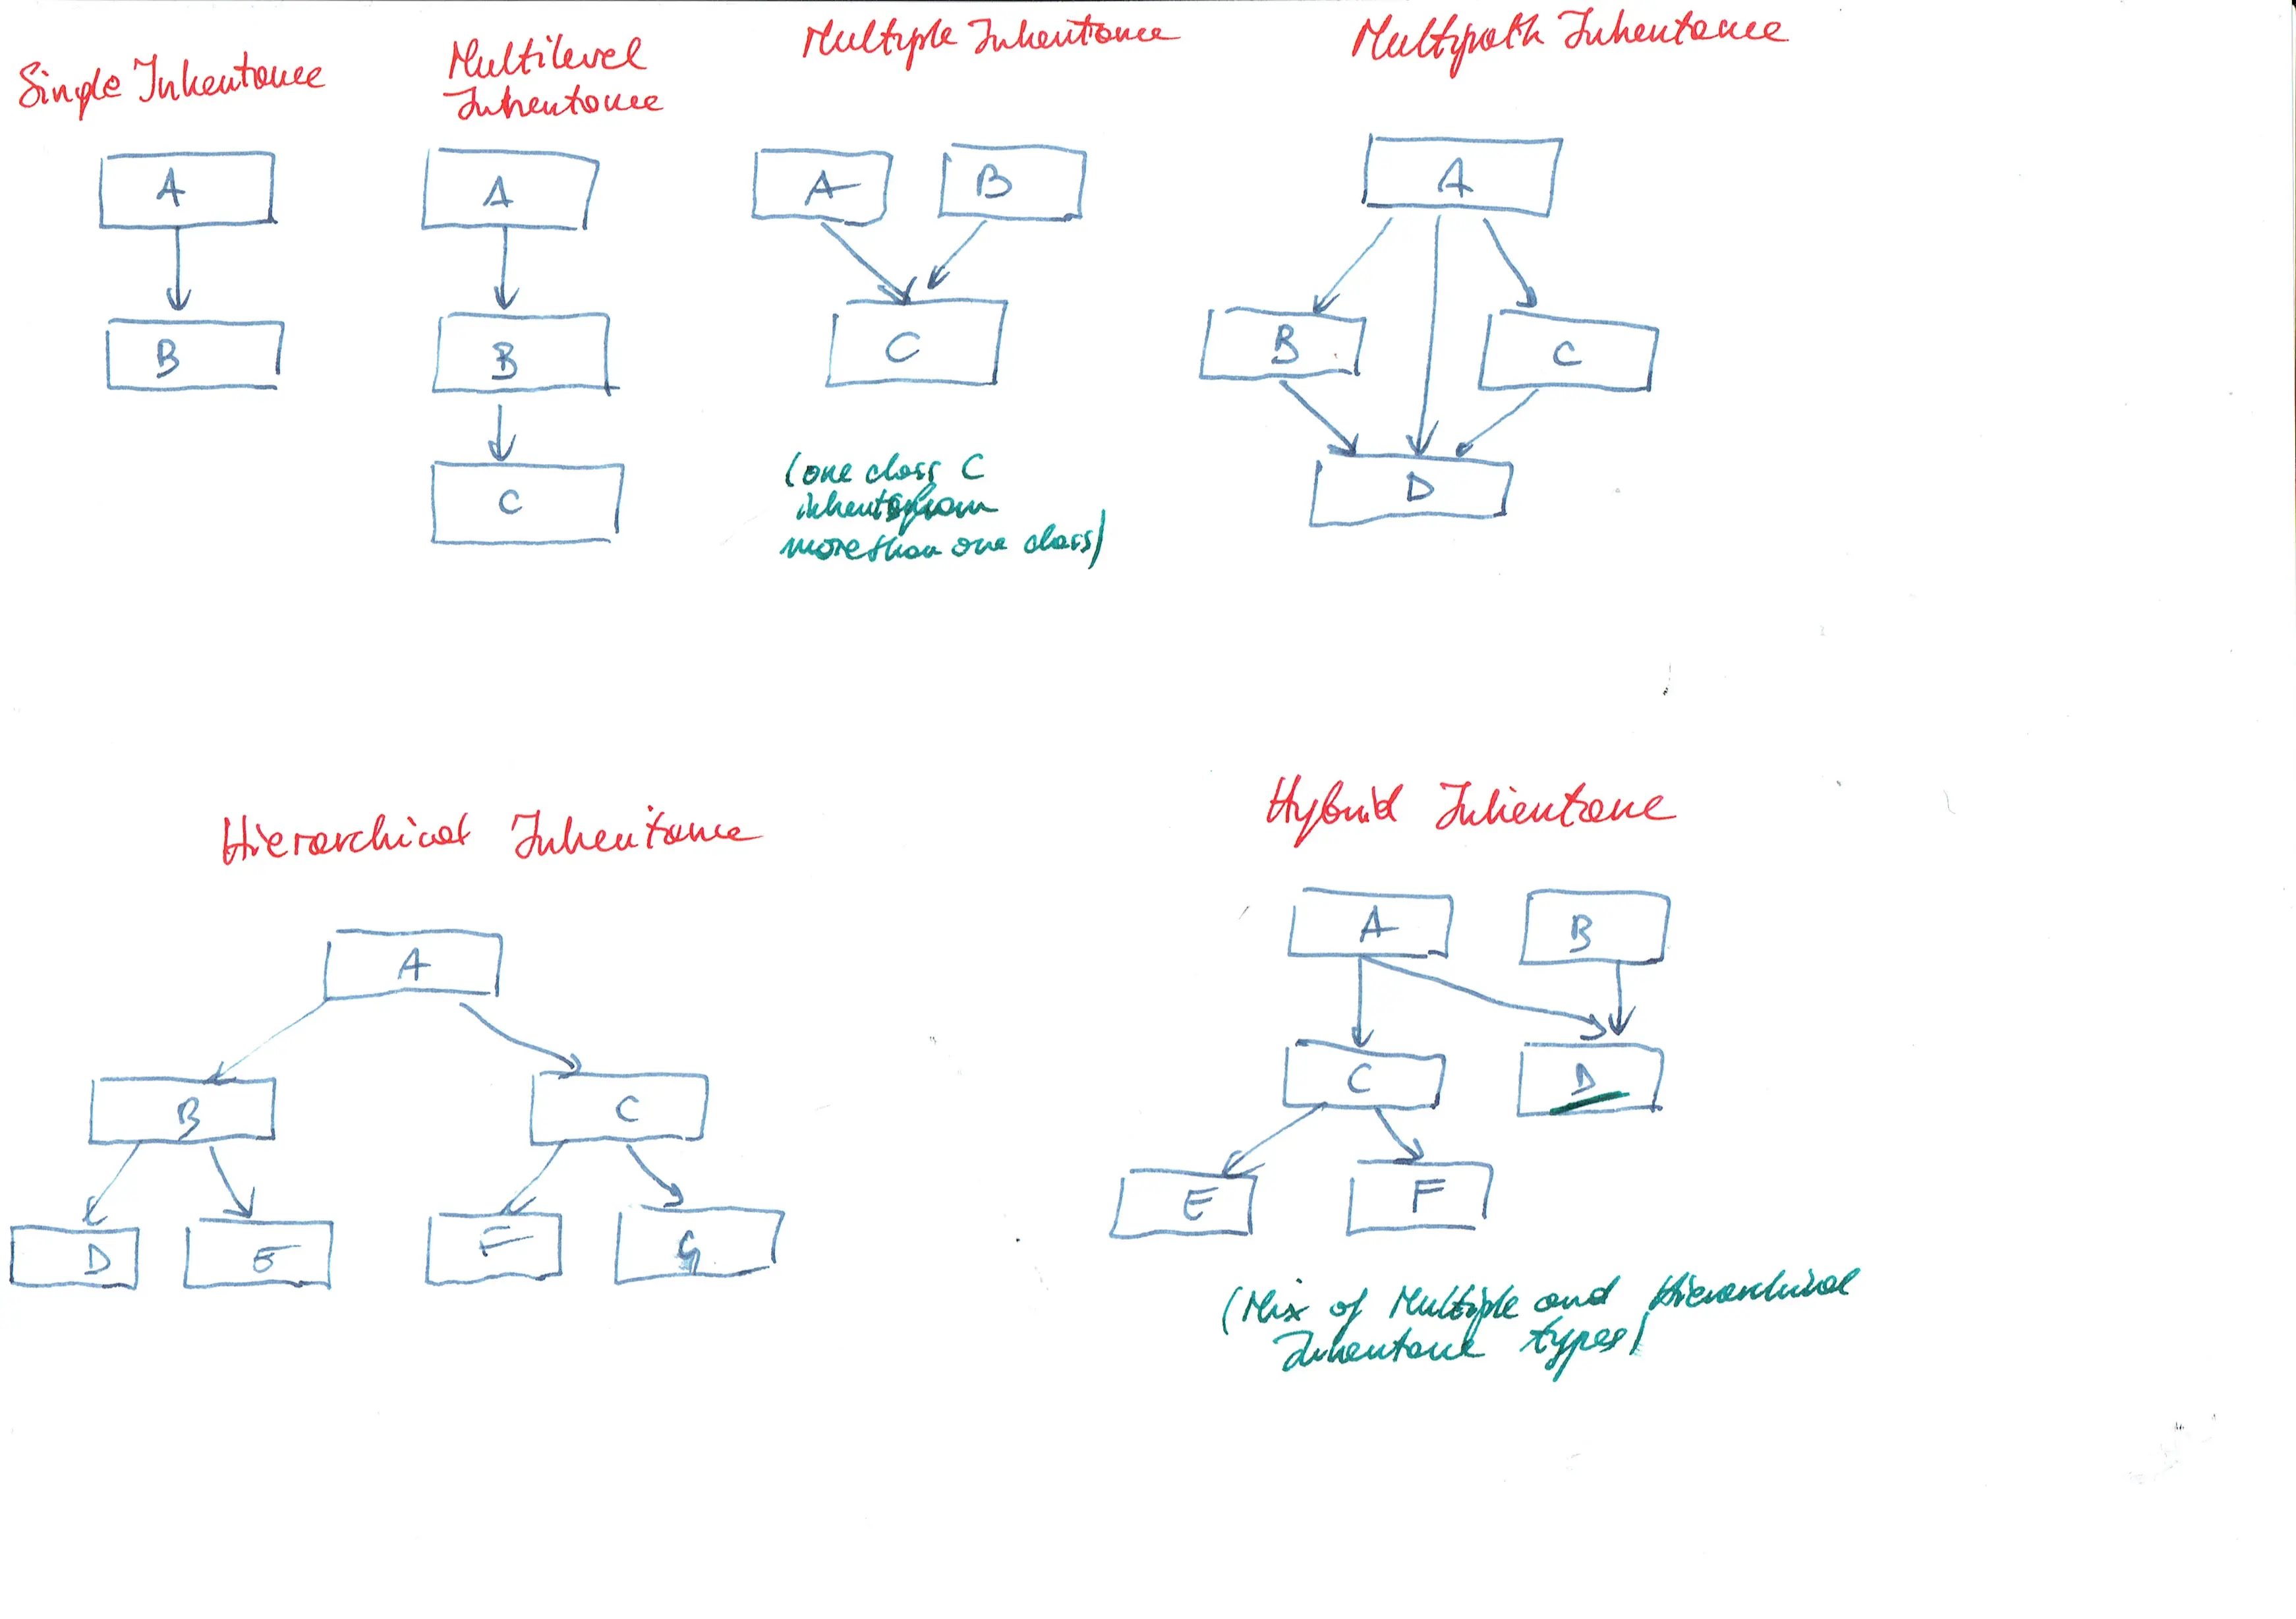 Single Inheritance
A
B
Multilevel
Inheritance
A
B
C
Multiple Inheritance
A
B
C
(one class C
inherits from
more than one class)
Multipath Inheritance
A
B
C
D
Hierarchical Inheritance
A
B
C
D
E
F
G
Hybrid Inheritance
A
B
C
D
E
F
(Mix of Multiple and Hierarchical
Inheritance types)